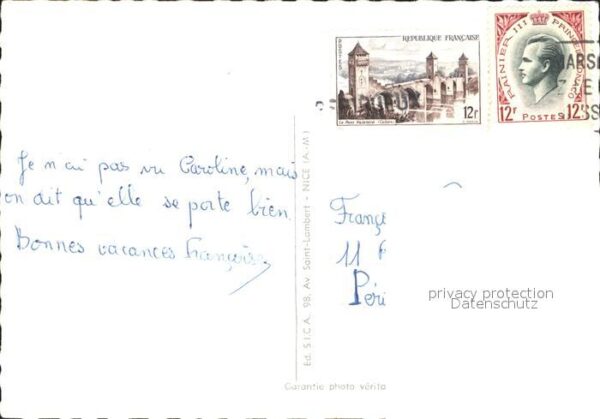 RÉPUBLIQUE FRANÇAISE
12f
Le Pont Valentré (Cahors)
RAINIER III PRINCE DE MONACO
12F POSTES 12F
Je n'ai pas vu Caroline, mais
on dit qu'elle se porte bien.
Bonnes vacances Françoise
Ed. S.I.C.A. 98, Av. Saint-Lambert - NICE (A.-M.)
Garantie photo vérita
Franç
11
Péri
privacy protection
Datenschutz